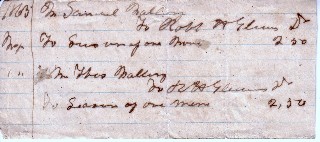 1863 Mr Samuel Mallery
To Robt H Glenn Dr
To Season of one Mare 2,50
" " Mr Thos Mallery
To R H Glenn Dr
To Season of one mare 2,50